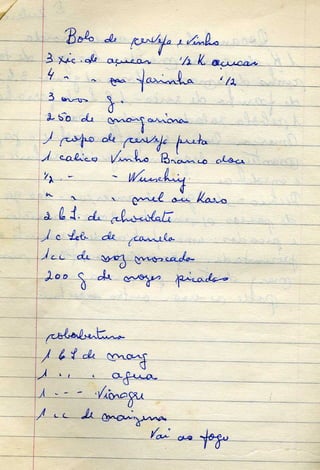 Bolo de cerveja e vinho
3 xic. de açucar 1/2 K açucar
4 " " farinha 1/2
3 ovos g.
250 de margarina
1 copo de cerveja preta
1 calice Vinho Branco doce
1/2 - -
" " " mel ou Karo
2 c. S. de chocolate
1 c Sob. de canela
1 cc de noz moscada
200 g de nozes picadas
cobertura
1 c S. de marg
1 " " " agua
1 - - - Vinagre
1 cc de maizena
Vai ao fogo